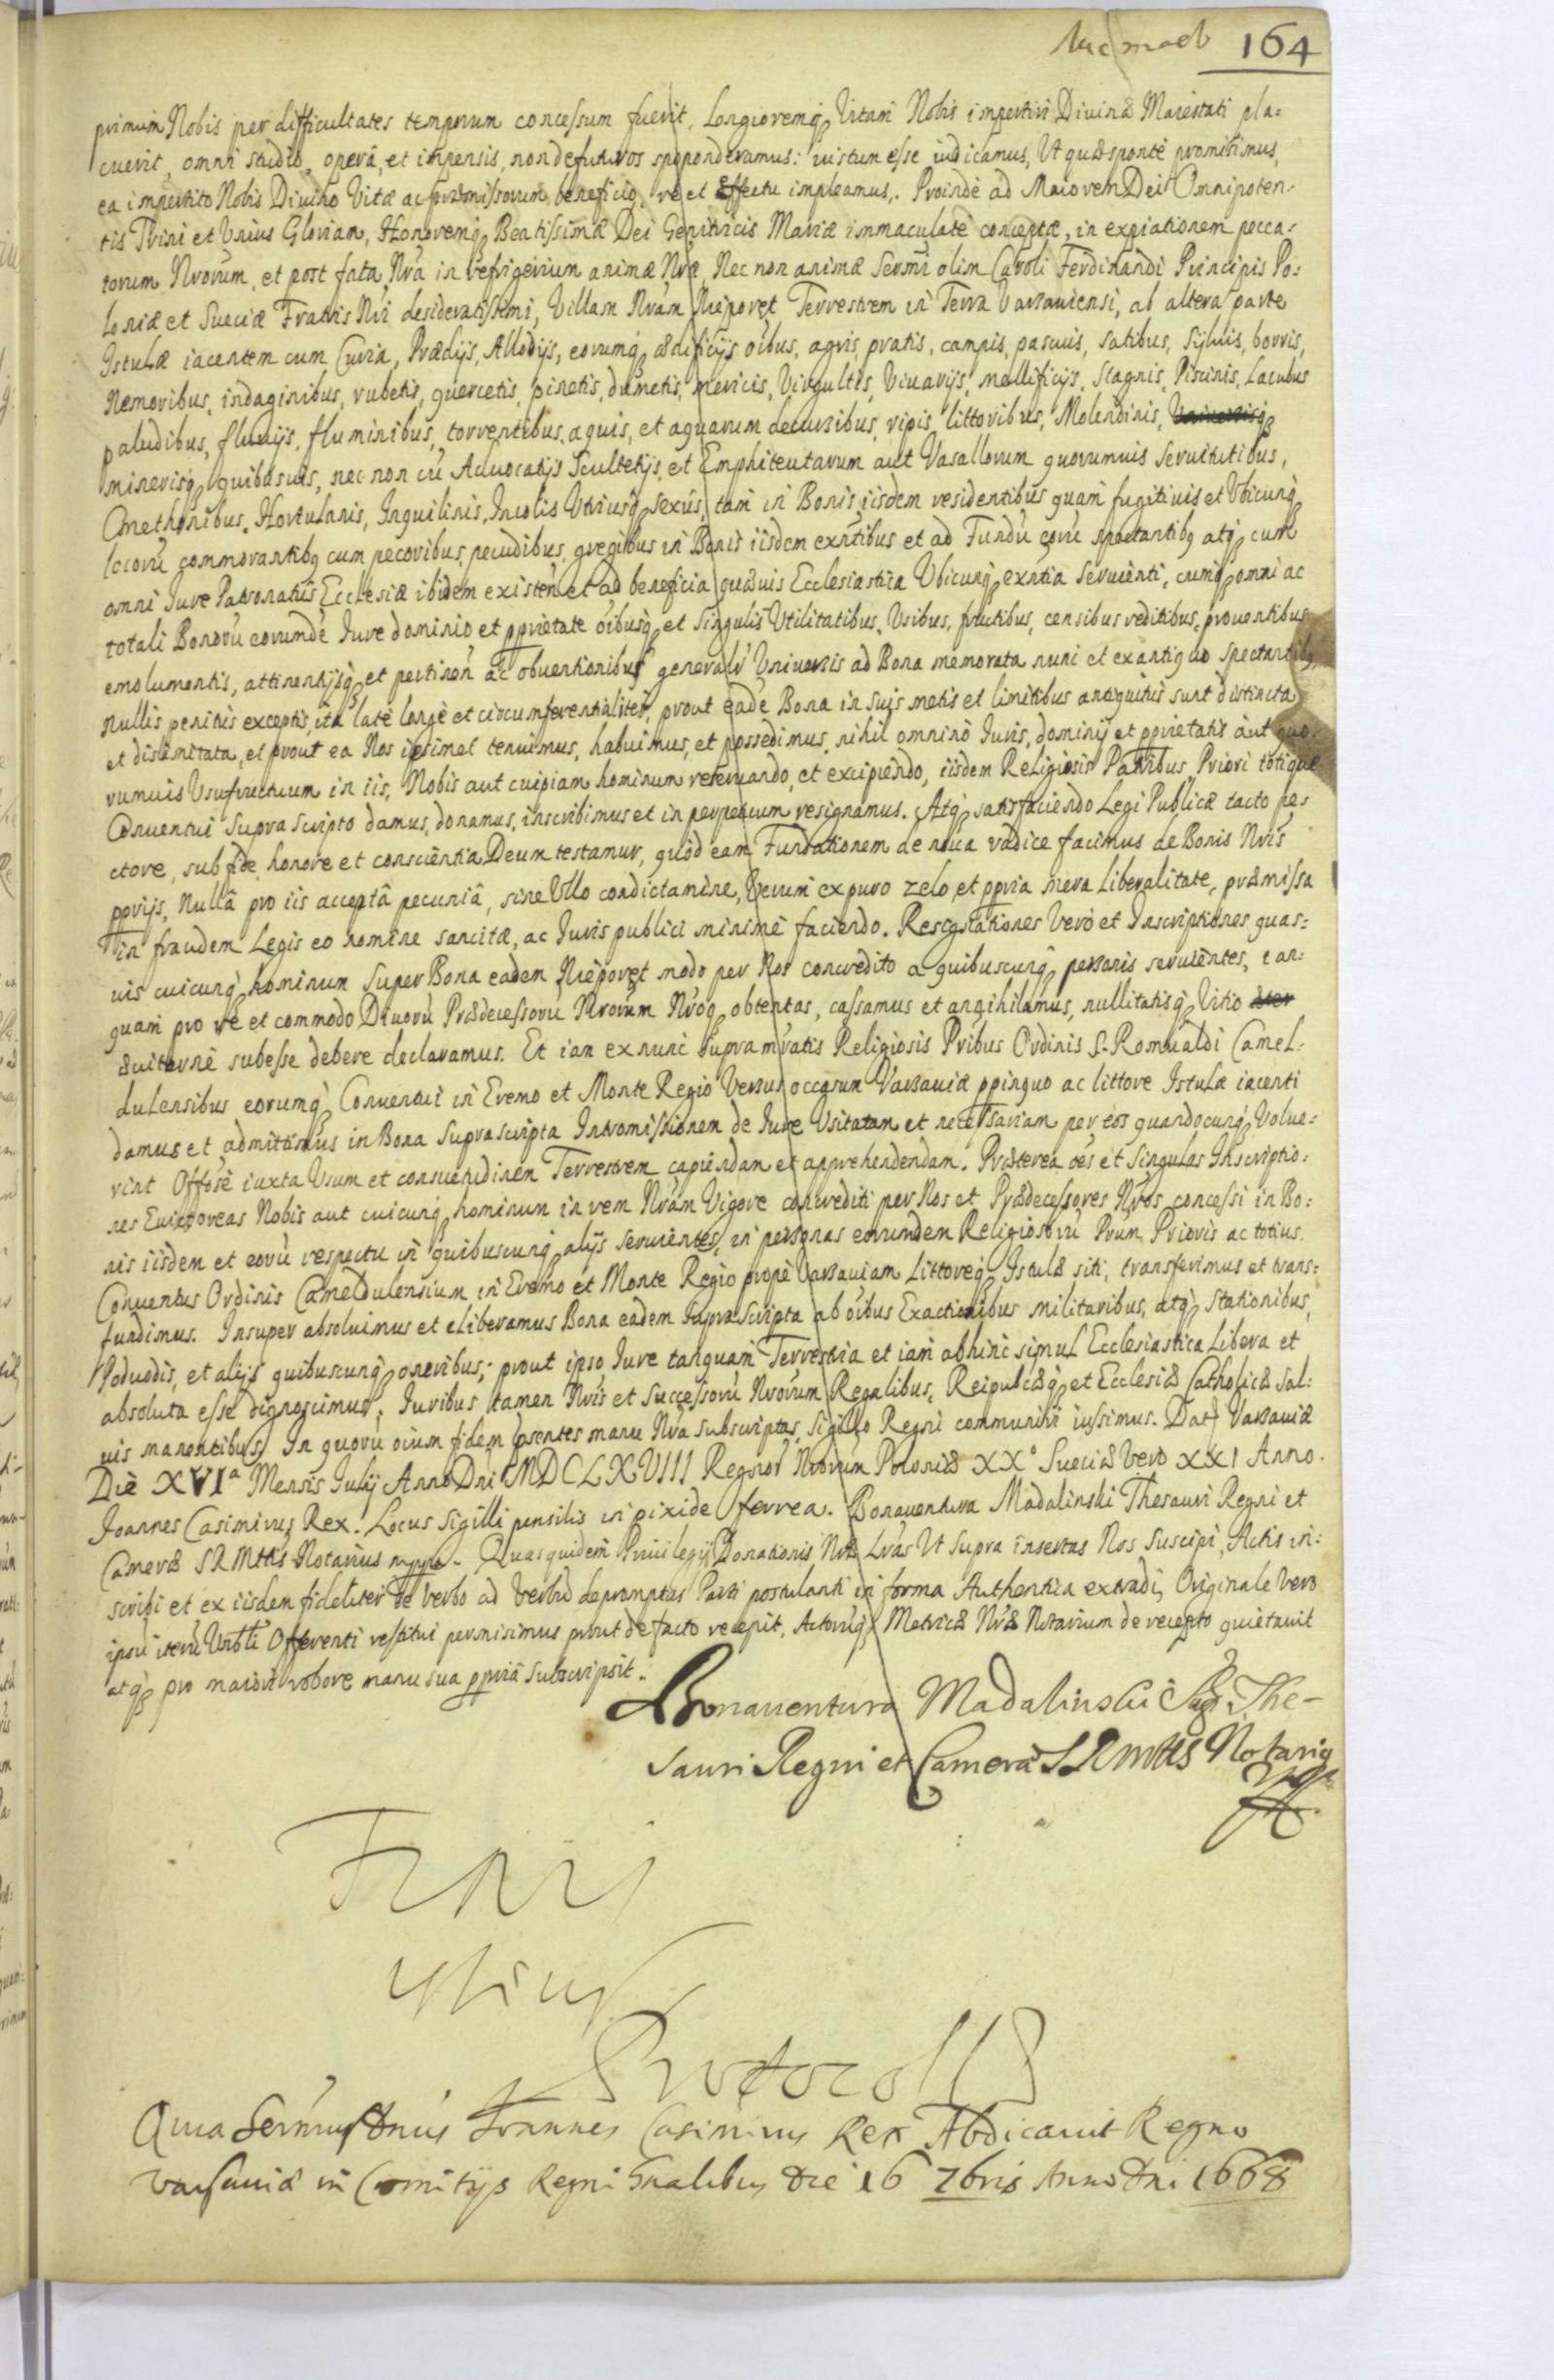 164
primum Nobis per difficultates temporum concessum fuerit, Longioremq3 Vitam Nobis impertiri Diuinæ Maiestati pla=
cuerit, omni studio, operâ, et impensis, non defuturos spoponderamus: iustum esse iudicamus, Ut quæ sponte promisimus,
ea impertito Nobis Diuino Vitæ ac præmissorum beneficio, re et Effectu impleamus. Proinde ad Maiorem Dei Omnipoten=
tis Trini et Unius Gloriam, Honoremq3 Beatissimæ Dei Genitricis Mariæ immaculate conceptæ, in expiationem pecca=
torum Nrorum, et post fata Nra in refrigerium animæ Nræ, Nec non animæ Sermi olim Caroli Ferdinandi Principis Po=
loniæ et Sueciæ Fratris Nri desideratissimi, Villam Nram Nieporęt Terrestrem in Terra Varsauiensi, ab altera parte
Istulæ iacentem cum Curia, Prædijs, Allodijs, eorumq3 ædificijs oibus, agris, pratis, campis, pascuis, satibus, Syluis, borris,
Nemoribus, indaginibus, rubetis, quercetis, pinetis, dumetis, mericis, Virgultis, Viuarijs, mellificijs, Stagnis, Piscinis, Lacubus
paludibus, fluuijs, fluminibus, torrentibus, aquis, et aquarum decursibus, ripis, littoribus, Molendinis,
minerisq3 quibusuis, nec non cu Aduocatijs Scultetijs, et Emphiteutarum aut Vasallorum quorumuis Seruitutibus,
Cmethonibus, Hortulanis, Inquilinis, Incolis Utriusq3 sexus, tam in Bonis iisdem residentibus quam fugitiuis et Ubicunq3
locoru commorantibq cum pecoribus, pecudibus, gregibus in Bonis iisdem exntibus et ad Fundu eoru spectantibq atq3 cum
omni Jure Patronatus Ecclesiæ ibidem existen et ad beneficia quæuis Ecclesiastica Ubicunq3 exntia Seruienti, cumq3 omni ac
totali Bonoru eorunde Iure dominio et pprietate oibusq3 et Singulis Utilitatibus, Usibus, fructibus, censibus reditibus, prouentibus
emolumentis, attinentijsq3 et pertinen ac obuentionibus generalr Uniuersis ad Bona memorata nunc et ex antiquo spectantibq
nullis penitus exceptis, ita late longe et circumferentialiter, prout eade Bona in suis metis et limitibus antiquitus sunt distincta
et dislimitata, et prout ea Nos ipsimet tenuimus, habuimus, et possedimus, nihil omnino Iuris, dominij et pprietatis aut quo=
rumuis Usufructuum in iis, Nobis aut cuipiam hominum reseruando, et excipiendo, iisdem Religiosis Patribus Priori totique
Conuentui supra scripto damus, donamus, inscribimus et in perpetuum resignamus. Atq3 satisfaciendo Legi Publicæ tacto pe=
ctore, sub fide, honore et conscientia Deum testamur, quod eam Fundationem de noua radice facimus de Bonis Nris
pprijs, Nullâ pro iis acceptâ pecuniâ, sine Ullo condictamine, Verum ex puro zelo, et ppria mera Liberalitate, præmissa
in fraudem Legis eo nomine sancitæ, ac Iuris publici minime faciendo. Resignationes Vero et Inscriptiones quas=
uis cuicunq3 hominum super Bona eadem Nieporęt modo per Nos concredito a quibuscunq3 personis seruientes, tan=
quam pro re et commodo Diuoru Prædecessoru Nrorum Nroq3 obtentas, cassamus et annihilamus, nullitatisq3 Vitio
æuiterne subesse debere declaramus. Et iam ex nunc supra mratis Religiosis Pribus Ordinis S. Romualdi Camel=
dulensibus eorumq3 Conuentui in Eremo et Monte Regio Versus occasum Varsauiæ ppinquo ac littore Istulæ iacenti
damus et admittimus in Bona suprascripta Intromissionem de Iure Usitatam et necessariam per eos quandocunq3 Volue=
rint Offose iuxta Usum et consuetudinem Terrestrem capiendam et apprehendendam. Præterea oes et singulas Inscriptio=
nes Euictoreas Nobis aut cuicunq3 hominum in rem Nram Vigore concrediti per Nos et Prædecessores Nros concessi in Bo=
nis iisdem et eoru respectu in quibuscunq3 alijs seruientes, in personas eorundem Religiosoru Prum Prioris ac totius
Conuentus Ordinis Cameldulensium in Eremo et Monte Regio prope Varsauiam Littoreq3 Istulæ siti, transferimus et trans=
fundimus. Insuper absoluimus et eliberamus Bona eadem supra scripta ab oibus Exactionibus militaribus, atq3 Stationibus,
Poduodis, et alijs quibuscunq3 oneribus; prout ipso Iure tanquam Terrestria et iam abhinc simul Ecclesiastica Libera et
absoluta esse dignoscimus; Iuribus tamen Nris et Successoru Nrorum Regalibus, Reipublicæq3 et Ecclesiæ Catholicæ Sal=
uis manentibus. In quoru oium fidem psentes manu Nra subscriptas, Sigillo Regni communiri iussimus. Dat Varsauiæ
Die XVIa Mensis Iulij Anno Dni MDCLXVIII Regnor Nrorum Poloniæ XXo Sueciæ Vero XXI Anno.
Joannes Casimirus Rex. Locus Sigilli pensilis in pixide ferrea. Bonauentura Madalinski Thesauri Regni et
Cameræ SRMttis Notarius mppa. Quas quidem Priuilegij Donationis Nræ Lras Ut supra insertas Nos Suscipi, Actis in=
scribi et ex iisdem fideliter de verbo ad verbu depromptas Parti postulanti in forma Authentica extradi, Originale vero
ipsu iteru Offerenti restitui permisimus prout de facto recepit, Actoruq3 Metricæ Nræ Notarium de recepto quietauit
atq3 pro maiori robore manu sua ppriâ subscripsit.
Bonauentura Madalinski The-
sauri Regni et Camera SRMttis Notariq
Finis
Protocolli
Quia Sermus Dnus Joannes Casimirus Rex Abdicauit Regno
Varsauiæ in Comitijs Regni Gnalibus die 16 7bris Anno Dni 1668